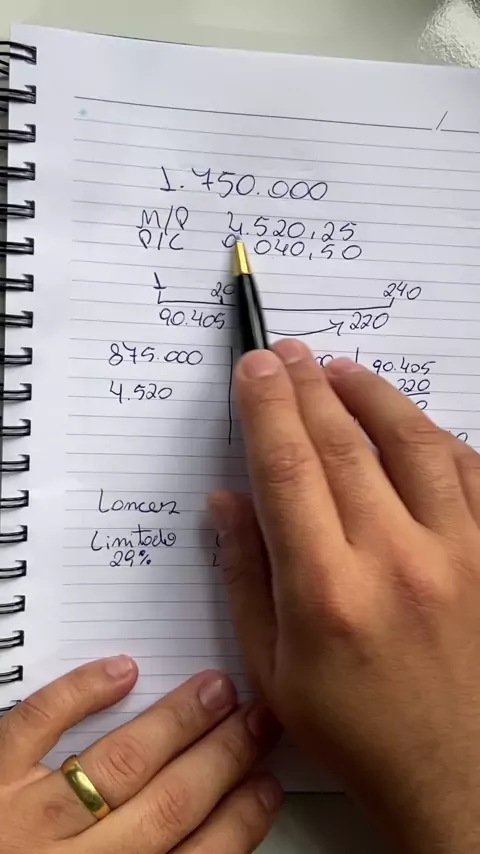 1.750.000
M/P 4.520,25
P/C 9.040,50
1 20 240
90.405 220
875.000 90.405
4.520 220
Lances
Limitado
29%